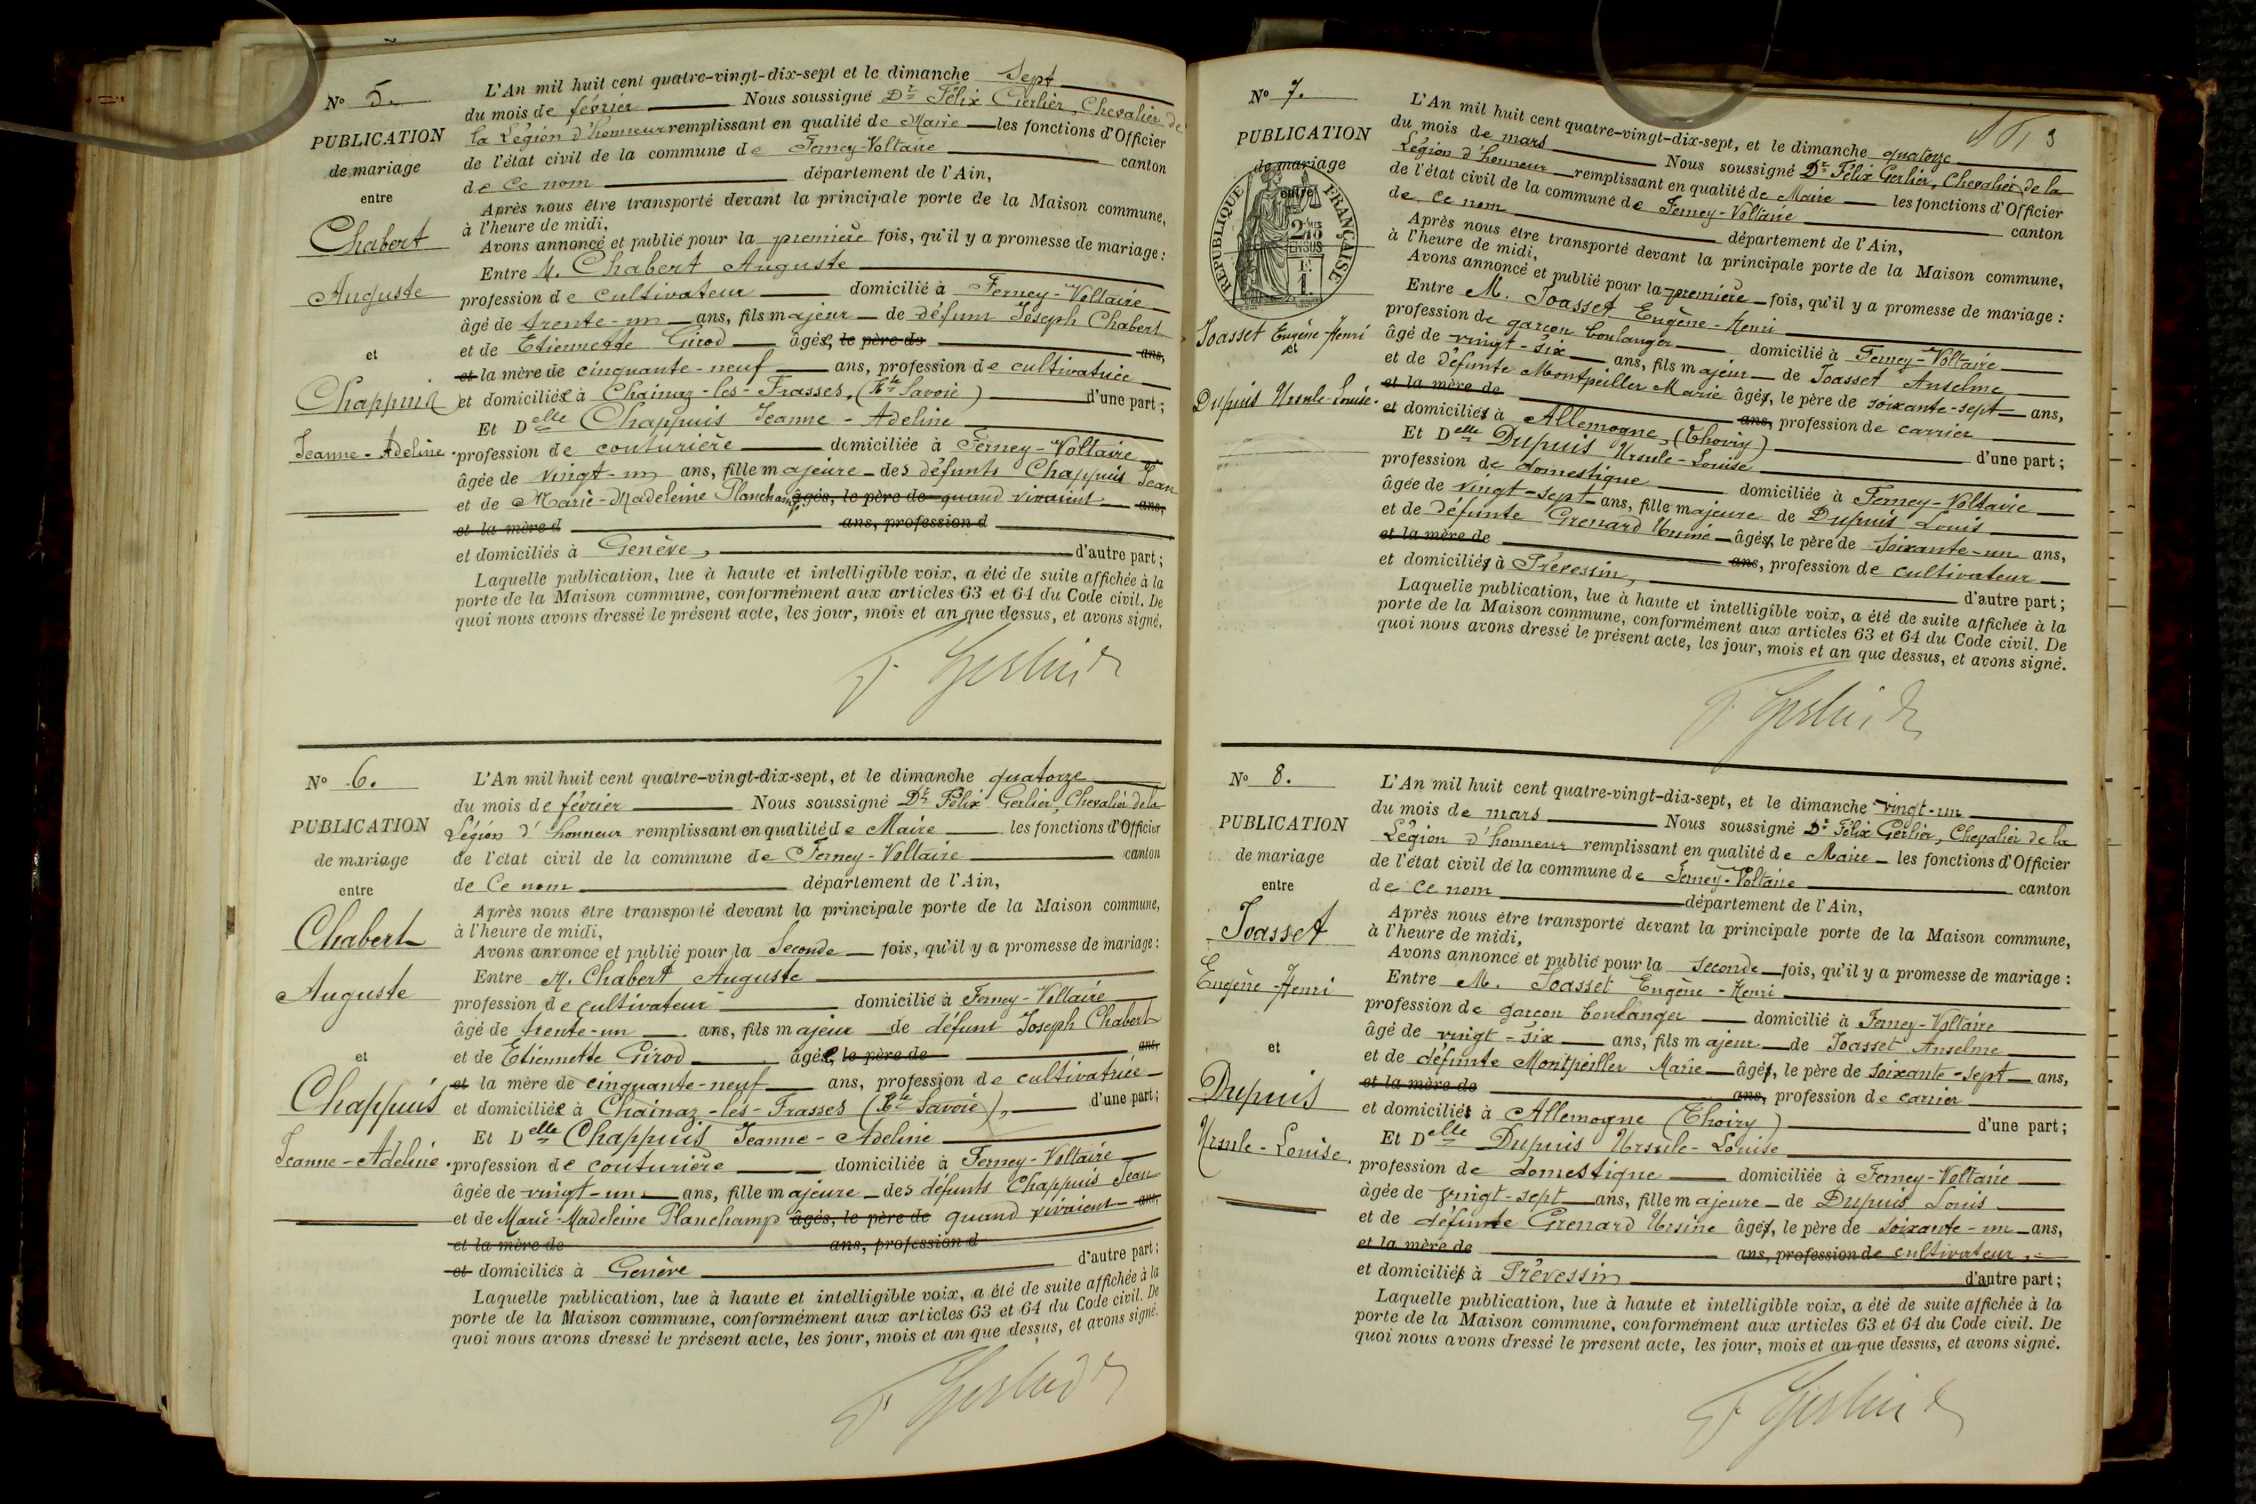 N° 5.
PUBLICATION
de mariage
entre
Chabert
Auguste
et
Chappuis
Jeanne-Adeline.
L'An mil huit cent quatre-vingt-dix-sept et le dimanche sept
du mois de février Nous soussigné Dr Félix Gerlier, Chevalier de
la Légion d'honneur remplissant en qualité de Maire les fonctions d'Officier
de l'état civil de la commune de Ferney-Voltaire canton
de Ce nom département de l'Ain,
Après nous être transporté devant la principale porte de la Maison commune,
à l'heure de midi,
Avons annoncé et publié pour la première fois, qu'il y a promesse de mariage:
Entre M. Chabert Auguste
profession de cultivateur domicilié à Ferney-Voltaire
âgé de trente-un ans, fils majeur de défunt Joseph Chabert
et de Etiennette Girod âgée, le père de ans,
et la mère de cinquante-neuf ans, profession de cultivatrice
et domiciliée à Chainaz-les-Frasses, (Hte Savoie) d'une part;
Et Delle Chappuis Jeanne-Adeline
profession de couturière domiciliée à Ferney-Voltaire
âgée de vingt-un ans, fille majeure des défunts Chappuis Jean
et de Marie-Madeleine Planchamp âgés, le père de quand vivaient ans,
et la mère d ans, profession d
et domiciliés à Genève, d'autre part;
Laquelle publication, lue à haute et intelligible voix, a été de suite affichée à la
porte de la Maison commune, conformément aux articles 63 et 64 du Code civil. De
quoi nous avons dressé le présent acte, les jour, mois et an que dessus, et avons signé.
F. Gerlier Dr
N° 6.
PUBLICATION
de mariage
entre
Chabert
Auguste
et
Chappuis
Jeanne-Adeline.
L'An mil huit cent quatre-vingt-dix-sept, et le dimanche quatorze
du mois de février Nous soussigné Dr Félix Gerlier, Chevalier de la
Légion d'honneur remplissant en qualité de Maire les fonctions d'Officier
de l'état civil de la commune de Ferney-Voltaire canton
de Ce nom département de l'Ain,
Après nous être transporté devant la principale porte de la Maison commune,
à l'heure de midi,
Avons annoncé et publié pour la Seconde fois, qu'il y a promesse de mariage:
Entre M. Chabert Auguste
profession de cultivateur domicilié à Ferney-Voltaire
âgé de trente-un ans, fils majeur de défunt Joseph Chabert
et de Etiennette Girod âgée, le père de ans,
et la mère de cinquante-neuf ans, profession de cultivatrice
et domiciliée à Chainaz-les-Frasses (Hte Savoie), d'une part;
Et Delle Chappuis Jeanne-Adeline
profession de couturière domiciliée à Ferney-Voltaire
âgée de vingt-un ans, fille majeure des défunts Chappuis Jean
et de Marie-Madeleine Planchamp âgés, le père de quand vivaient ans,
et la mère de ans, profession d
et domiciliés à Genève d'autre part;
Laquelle publication, lue à haute et intelligible voix, a été de suite affichée à la
porte de la Maison commune, conformément aux articles 63 et 64 du Code civil. De
quoi nous avons dressé le présent acte, les jour, mois et an que dessus, et avons signé.
F. Gerlier Dr
N° 7.
PUBLICATION
de mariage
entre
RÉPUBLIQUE FRANÇAISE
2/10mes
EN SUS
1F
Joasset Eugène-Henri
et
Dupuis Ursule-Louise.
3
L'An mil huit cent quatre-vingt-dix-sept, et le dimanche quatorze
du mois de mars Nous soussigné Dr Félix Gerlier, Chevalier de la
Légion d'honneur remplissant en qualité de Maire les fonctions d'Officier
de l'état civil de la commune de Ferney-Voltaire canton
de ce nom département de l'Ain,
Après nous être transporté devant la principale porte de la Maison commune,
à l'heure de midi,
Avons annoncé et publié pour la première fois, qu'il y a promesse de mariage:
Entre M. Joasset Eugène-Henri
profession de garçon boulanger domicilié à Ferney-Voltaire
âgé de vingt-six ans, fils majeur de Joasset Anselme
et de défunte Montpeiller Marie âgés, le père de soixante-sept ans,
et la mère de ans, profession de carrier
et domiciliés à Allemogne, (Thoiry) d'une part;
Et Delle Dupuis Ursule-Louise
profession de domestique domiciliée à Ferney-Voltaire
âgée de vingt-sept ans, fille majeure de Dupuis Louis
et de défunte Grenard Ursine âgés, le père de soixante-un ans,
et la mère de ans, profession de cultivateur
et domiciliés à Prévessin, d'autre part;
Laquelle publication, lue à haute et intelligible voix, a été de suite affichée à la
porte de la Maison commune, conformément aux articles 63 et 64 du Code civil. De
quoi nous avons dressé le présent acte, les jour, mois et an que dessus, et avons signé.
F. Gerlier Dr
N° 8.
PUBLICATION
de mariage
entre
Joasset
Eugène-Henri
et
Dupuis
Ursule-Louise.
L'An mil huit cent quatre-vingt-dix-sept, et le dimanche vingt-un
du mois de mars Nous soussigné Dr Félix Gerlier, Chevalier de la
Légion d'honneur remplissant en qualité de Maire les fonctions d'Officier
de l'état civil de la commune de Ferney-Voltaire canton
de ce nom département de l'Ain,
Après nous être transporté devant la principale porte de la Maison commune,
à l'heure de midi,
Avons annoncé et publié pour la seconde fois, qu'il y a promesse de mariage:
Entre M. Joasset Eugène-Henri
profession de garçon boulanger domicilié à Ferney-Voltaire
âgé de vingt-six ans, fils majeur de Joasset Anselme
et de défunte Montpeiller Marie âgés, le père de soixante-sept ans,
et la mère de ans, profession de carrier
et domiciliés à Allemogne (Thoiry) d'une part;
Et Delle Dupuis Ursule-Louise
profession de domestique domiciliée à Ferney-Voltaire
âgée de vingt-sept ans, fille majeure de Dupuis Louis
et de défunte Grenard Ursine âgés, le père de soixante-un ans,
et la mère de ans, profession de cultivateur,
et domiciliés à Prévessin d'autre part;
Laquelle publication, lue à haute et intelligible voix, a été de suite affichée à la
porte de la Maison commune, conformément aux articles 63 et 64 du Code civil. De
quoi nous avons dressé le present acte, les jour, mois et an que dessus, et avons signé.
F. Gerlier Dr